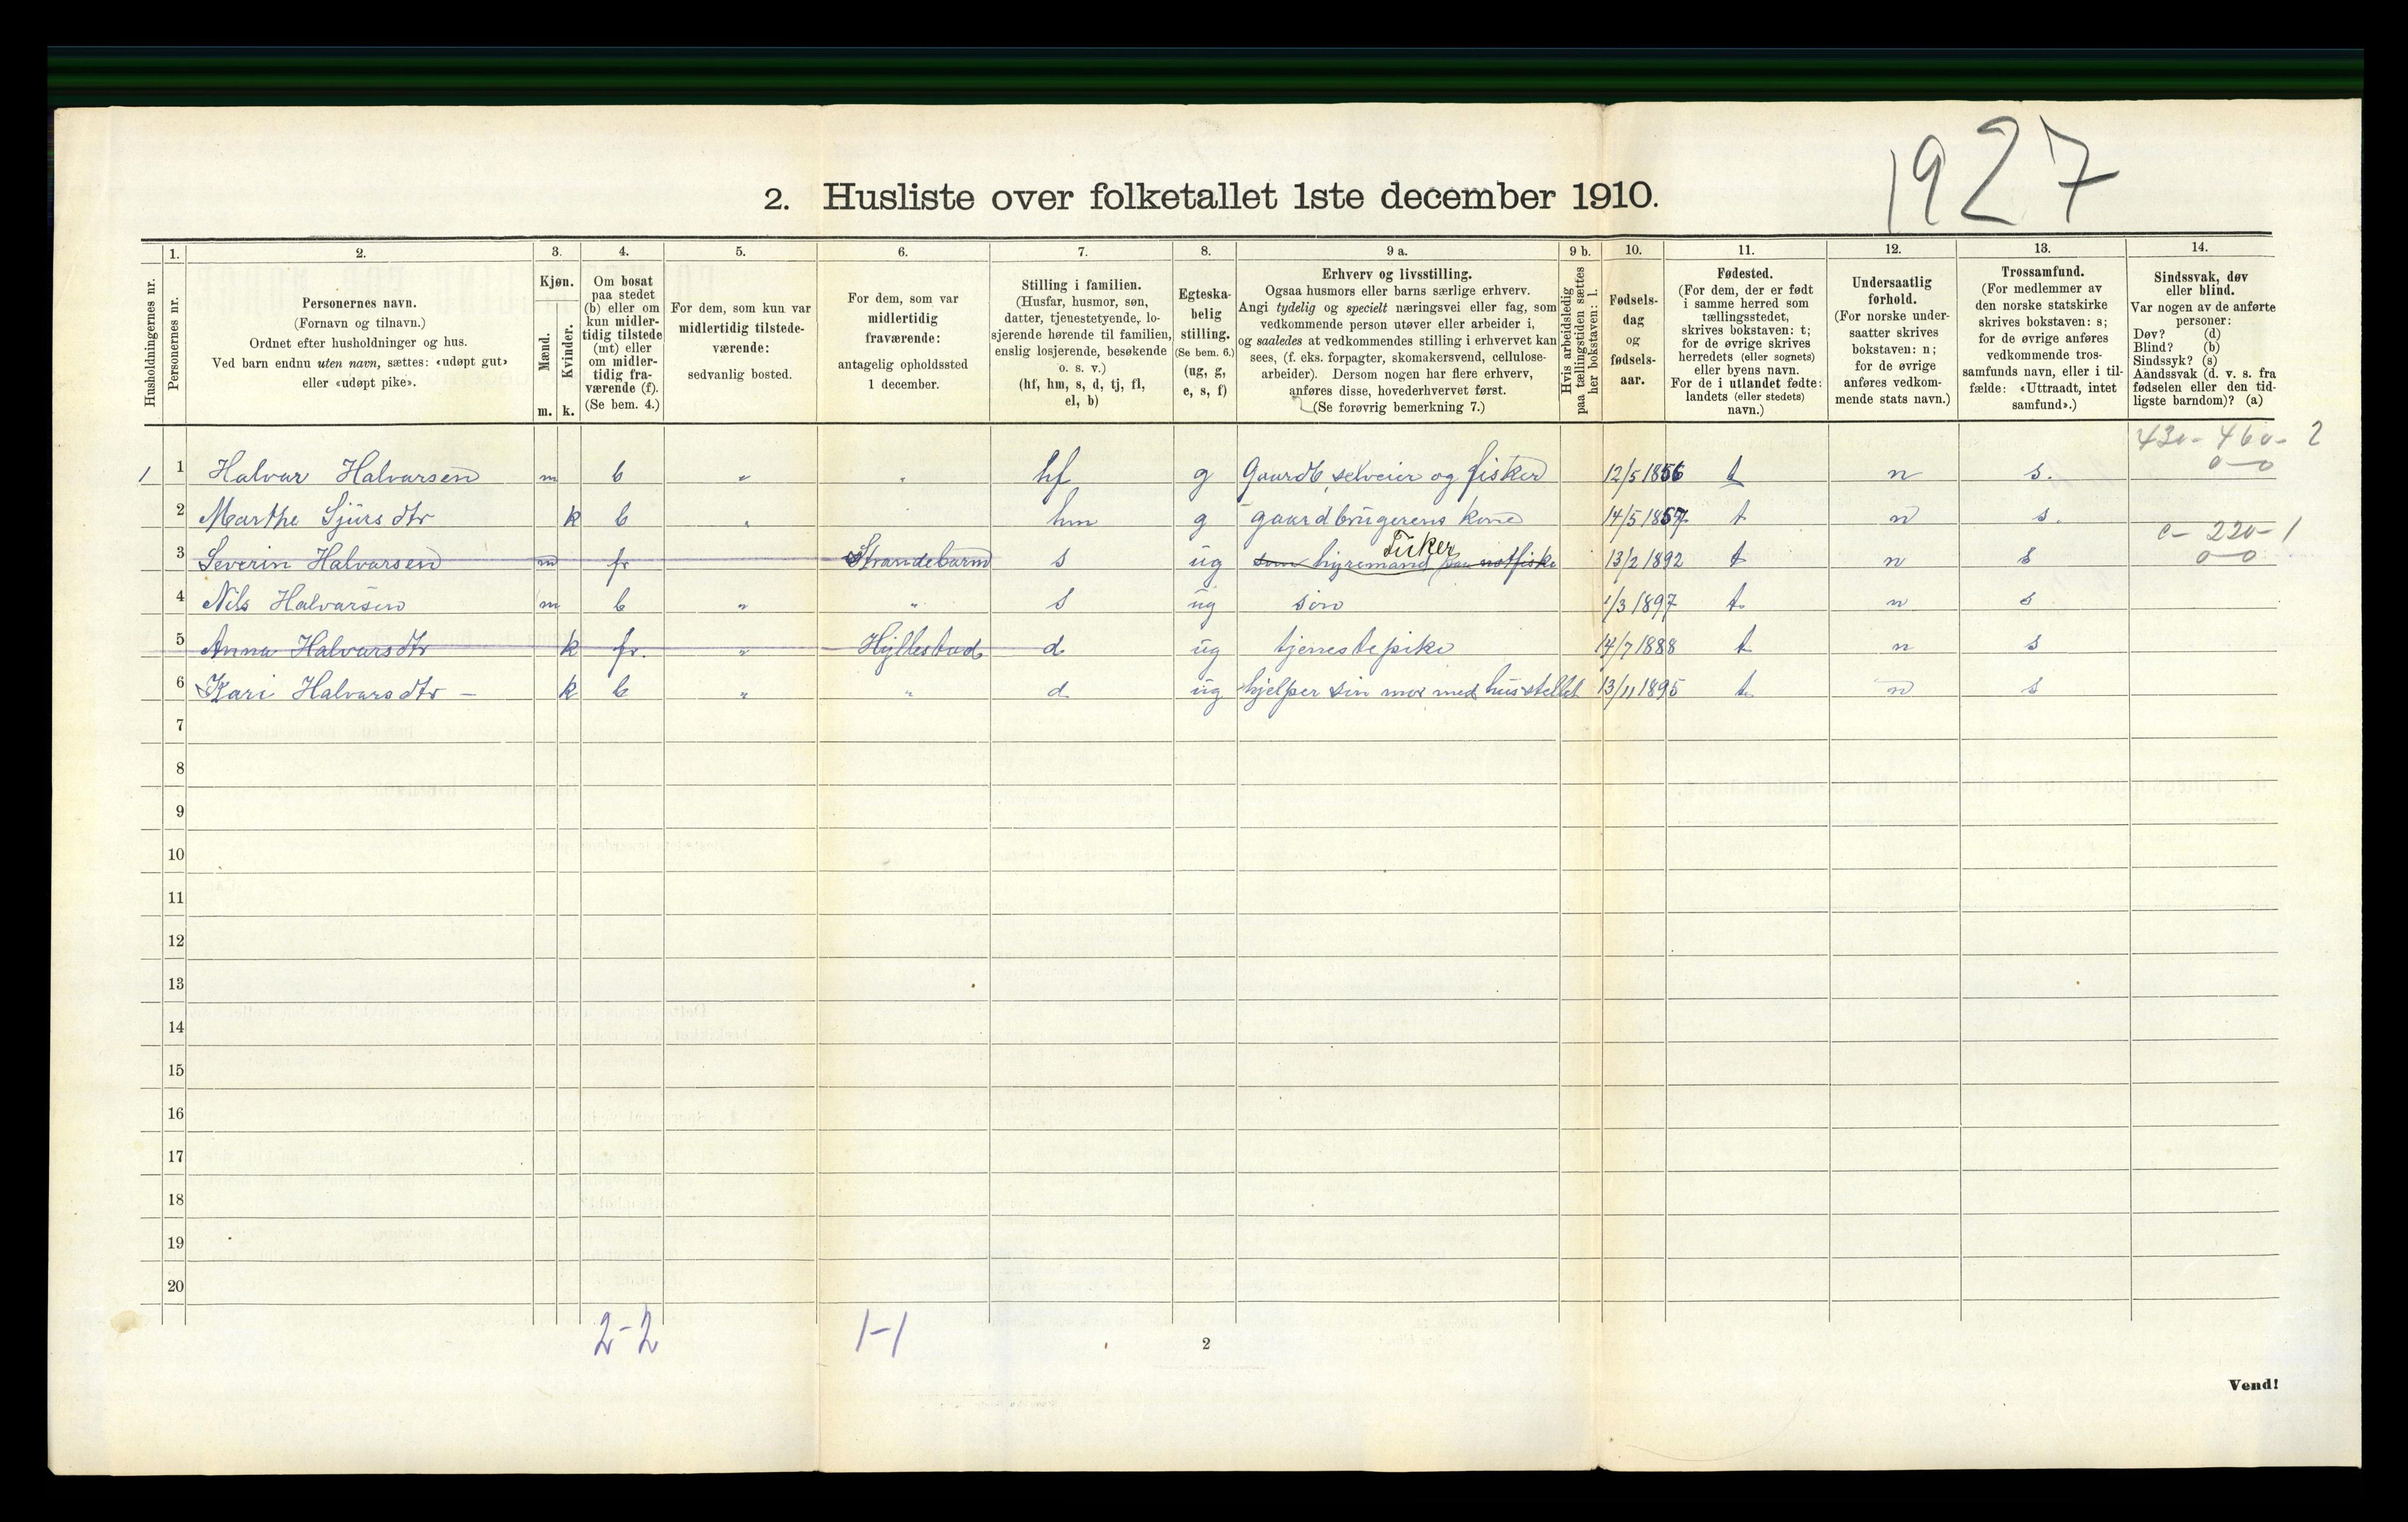 1927
2. Husliste over folketallet 1ste december 1910.
Husholdningernes nr.
1. Personernes nr.
2. Personernes navn.
(Fornavn og tilnavn.)
Ordnet efter husholdninger og hus.
Ved barn endnu uten navn, sættes: «udøpt gut»
eller «udøpt pike».
3. Kjøn.
Mænd. m.
Kvinder. k.
4. Om bosat
paa stedet
(b) eller om
kun midler-
tidig tilstede
(mt) eller
om midler-
tidig fra-
værende (f).
(Se bem. 4.)
5. For dem, som kun var
midlertidig tilstede-
værende:
sedvanlig bosted.
6. For dem, som var
midlertidig
fraværende:
antagelig opholdssted
1 december.
7. Stilling i familien.
(Husfar, husmor, søn,
datter, tjenestetyende, lo-
sjerende hørende til familien,
enslig losjerende, besøkende
o. s. v.)
(hf, hm, s, d, tj, fl,
el, b)
8. Egteska-
belig
stilling.
(Se bem. 6.)
(ug, g,
e, s, f)
9 a. Erhverv og livsstilling.
Ogsaa husmors eller barns særlige erhverv.
Angi tydelig og specielt næringsvei eller fag, som
vedkommende person utøver eller arbeider i,
og saaledes at vedkommendes stilling i erhvervet kan
sees, (f. eks. forpagter, skomakersvend, cellulose-
arbeider). Dersom nogen har flere erhverv,
anføres disse, hovederhvervet først.
(Se forøvrig bemerkning 7.)
9 b. Hvis arbeidsledig
paa tællingstiden sættes
her bokstaven: l.
10. Fødsels-
dag
og
fødsels-
aar.
11. Fødested.
(For dem, der er født
i samme herred som
tællingsstedet,
skrives bokstaven: t;
for de øvrige skrives
herredets (eller sognets)
eller byens navn.
For de i utlandet fødte:
landets (eller stedets)
navn.)
12. Undersaatlig
forhold.
(For norske under-
saatter skrives
bokstaven: n;
for de øvrige
anføres vedkom-
mende stats navn.)
13. Trossamfund.
(For medlemmer av
den norske statskirke
skrives bokstaven: s;
for de øvrige anføres
vedkommende tros-
samfunds navn, eller i til-
fælde: «Uttraadt, intet
samfund».)
14. Sindssvak, døv
eller blind.
Var nogen av de anførte
personer:
Døv? (d)
Blind? (b)
Sindssyk? (s)
Aandssvak (d. v. s. fra
fødselen eller den tid-
ligste barndom)? (a)
430- 460- 2
1 1 Halvar Halvarsen m b " " hf g Gaardb, selveier og fisker 12/5 1856 t n s. 0-0
2 Marthe Sjurs dtr k b " hm g gaardbrugerens kone 14/5 1857 t n s.
c- 220-1
Fisker
3 Severin Halvarsen m fr Strandebarm s ug som hyremand paa notfiske 13/2 1892 t n s 0-0
4 Nils Halvarsen m b " " s ug søn 1/3 1897 t. n s
5 Anna Halvarsdtr k fr. " Hyllestad d ug tjenestepike 14/7 1888 t n s
6 Kari Halvarsdtr - k b " " d ug hjelper sin mor med husstellet 13/11 1895 t n s
7
8
9
10
11
12
13
14
15
16
17
18
19
20
2-2 1-1
2
Vend!